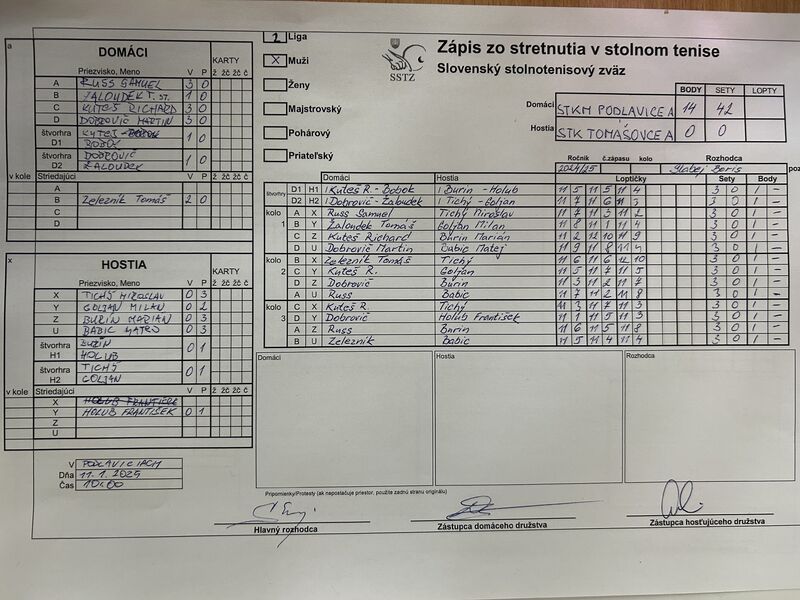 a
DOMÁCI
Priezvisko, Meno V P KARTY ž žč žč č
A RUSS SAMUEL 3 0
B ŽALOUDEK T. ST. 1 0
C KUTEŠ RICHARD 3 0
D DOBROVIČ MARTIN 3 0
štvorhra D1 KUTEŠ BOBOK 1 0
štvorhra D2 DOBROVIČ ŽALOUDEK 1 0
v kole Striedajúci V P ž žč žč č
A
B Železník Tomáš 2 0
C
D
x
HOSTIA
Priezvisko, Meno V P KARTY ž žč žč č
X TICHÝ MIROSLAV 0 3
Y GOLJAN MILAN 0 2
Z BURIN MARIAN 0 3
U BABIC MATEJ 0 3
štvorhra H1 BURIN HOLUB 0 1
štvorhra H2 TICHÝ GOLJAN 0 1
v kole Striedajúci V P ž žč žč č
X HOLUB FRANTIŠEK
Y HOLUB FRANTIŠEK 0 1
Z
U
V PODLAVICIACH
Dňa 11.1.2025
Čas 10:00
2 Liga
X Muži
Ženy
Majstrovský
Pohárový
Priateľský
SSTZ
Zápis zo stretnutia v stolnom tenise
Slovenský stolnotenisový zväz
BODY SETY LOPTY
Domáci STKM PODLAVICE A 14 42
Hostia STK TOMÁŠOVCE A 0 0
Ročník č.zápasu kolo Rozhodca
2024/25 Slabej Boris
Domáci Hostia Loptičky Sety Body
štvorhry D1 H1 Kuteš R. - Bobok Burin - Holub 11 5 11 5 11 4 3 0 1 -
D2 H2 Dobrovič - Žaloudek Tichý - Goljan 11 7 11 6 11 3 3 0 1 -
kolo 1 A X Russ Samuel Tichý Miroslav 11 7 11 3 11 2 3 0 1 -
B Y Žaloudek Tomáš Goljan Milan 11 8 11 1 11 4 3 0 1 -
C Z Kuteš Richard Burin Marián 11 2 12 10 11 9 3 0 1 -
D U Dobrovič Martin Babic Matej 11 9 11 8 11 4 3 0 1 -
kolo 2 B X Železník Tomáš Tichý 11 6 11 6 12 10 3 0 1 -
C Y Kuteš R. Goljan 11 5 11 7 11 5 3 0 1 -
D Z Dobrovič Burin 11 3 11 2 11 7 3 0 1 -
A U Russ Babic 11 7 11 2 11 8 3 0 1 -
kolo 3 C X Kuteš R. Tichý 11 3 11 7 11 3 3 0 1 -
D Y Dobrovič Holub František 11 1 11 5 11 3 3 0 1 -
A Z Russ Burin 11 6 11 5 11 8 3 0 1 -
B U Železník Babic 11 5 11 4 11 4 3 0 1 -
Domáci Hostia Rozhodca
Pripomienky/Protesty (ak nepostačuje priestor, použite zadnú stranu originálu)
Hlavný rozhodca Zástupca domáceho družstva Zástupca hosťujúceho družstva